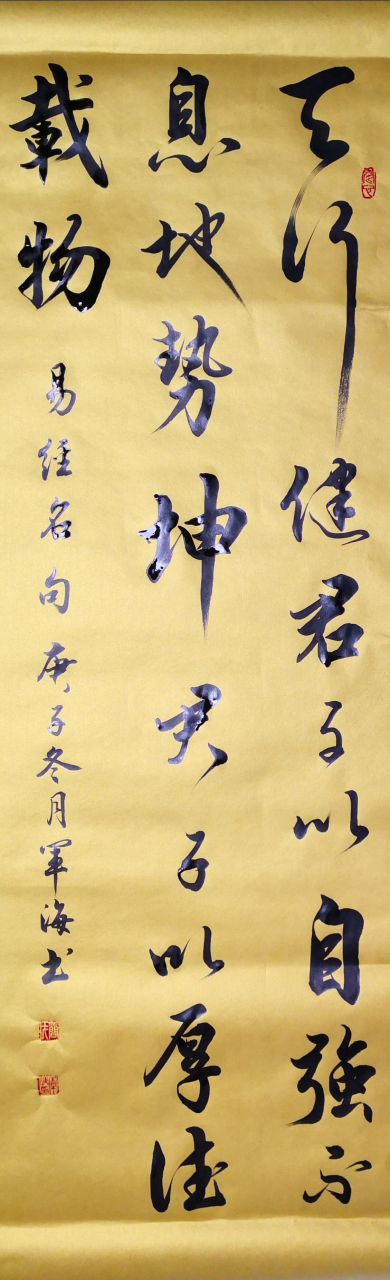 天行健君子以自強不
息地势坤君子以厚德
載物
易經名句庚子冬月軍海书